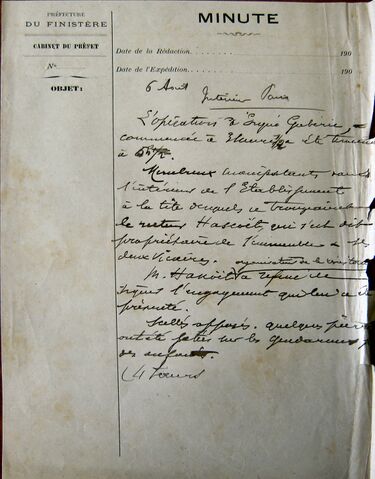 PRÉFECTURE
DU FINISTÈRE
CABINET DU PRÉFET
No
OBJET:
MINUTE
Date de la Rédaction 190
Date de l'Expédition 190
6 Août Intérieur Paris
L'opération d'Ergué Gabéric
commencée à 3 heures 1/2 a été terminée
à 5h 1/2.
Nombreux manifestants dans
l'intérieur de l'Etablissement
à la tête desquels se trouvaient
le recteur Hascoët, qui s'est dit
propriétaire de l'immeuble &
deux Vicaires.
M. Hascoët a refusé de
signer l'engagement qui lui a été
présenté.
Scellés apposés. quelques pierres
ont été jetées sur les gendarmes p
des enfants.
(4 soeurs